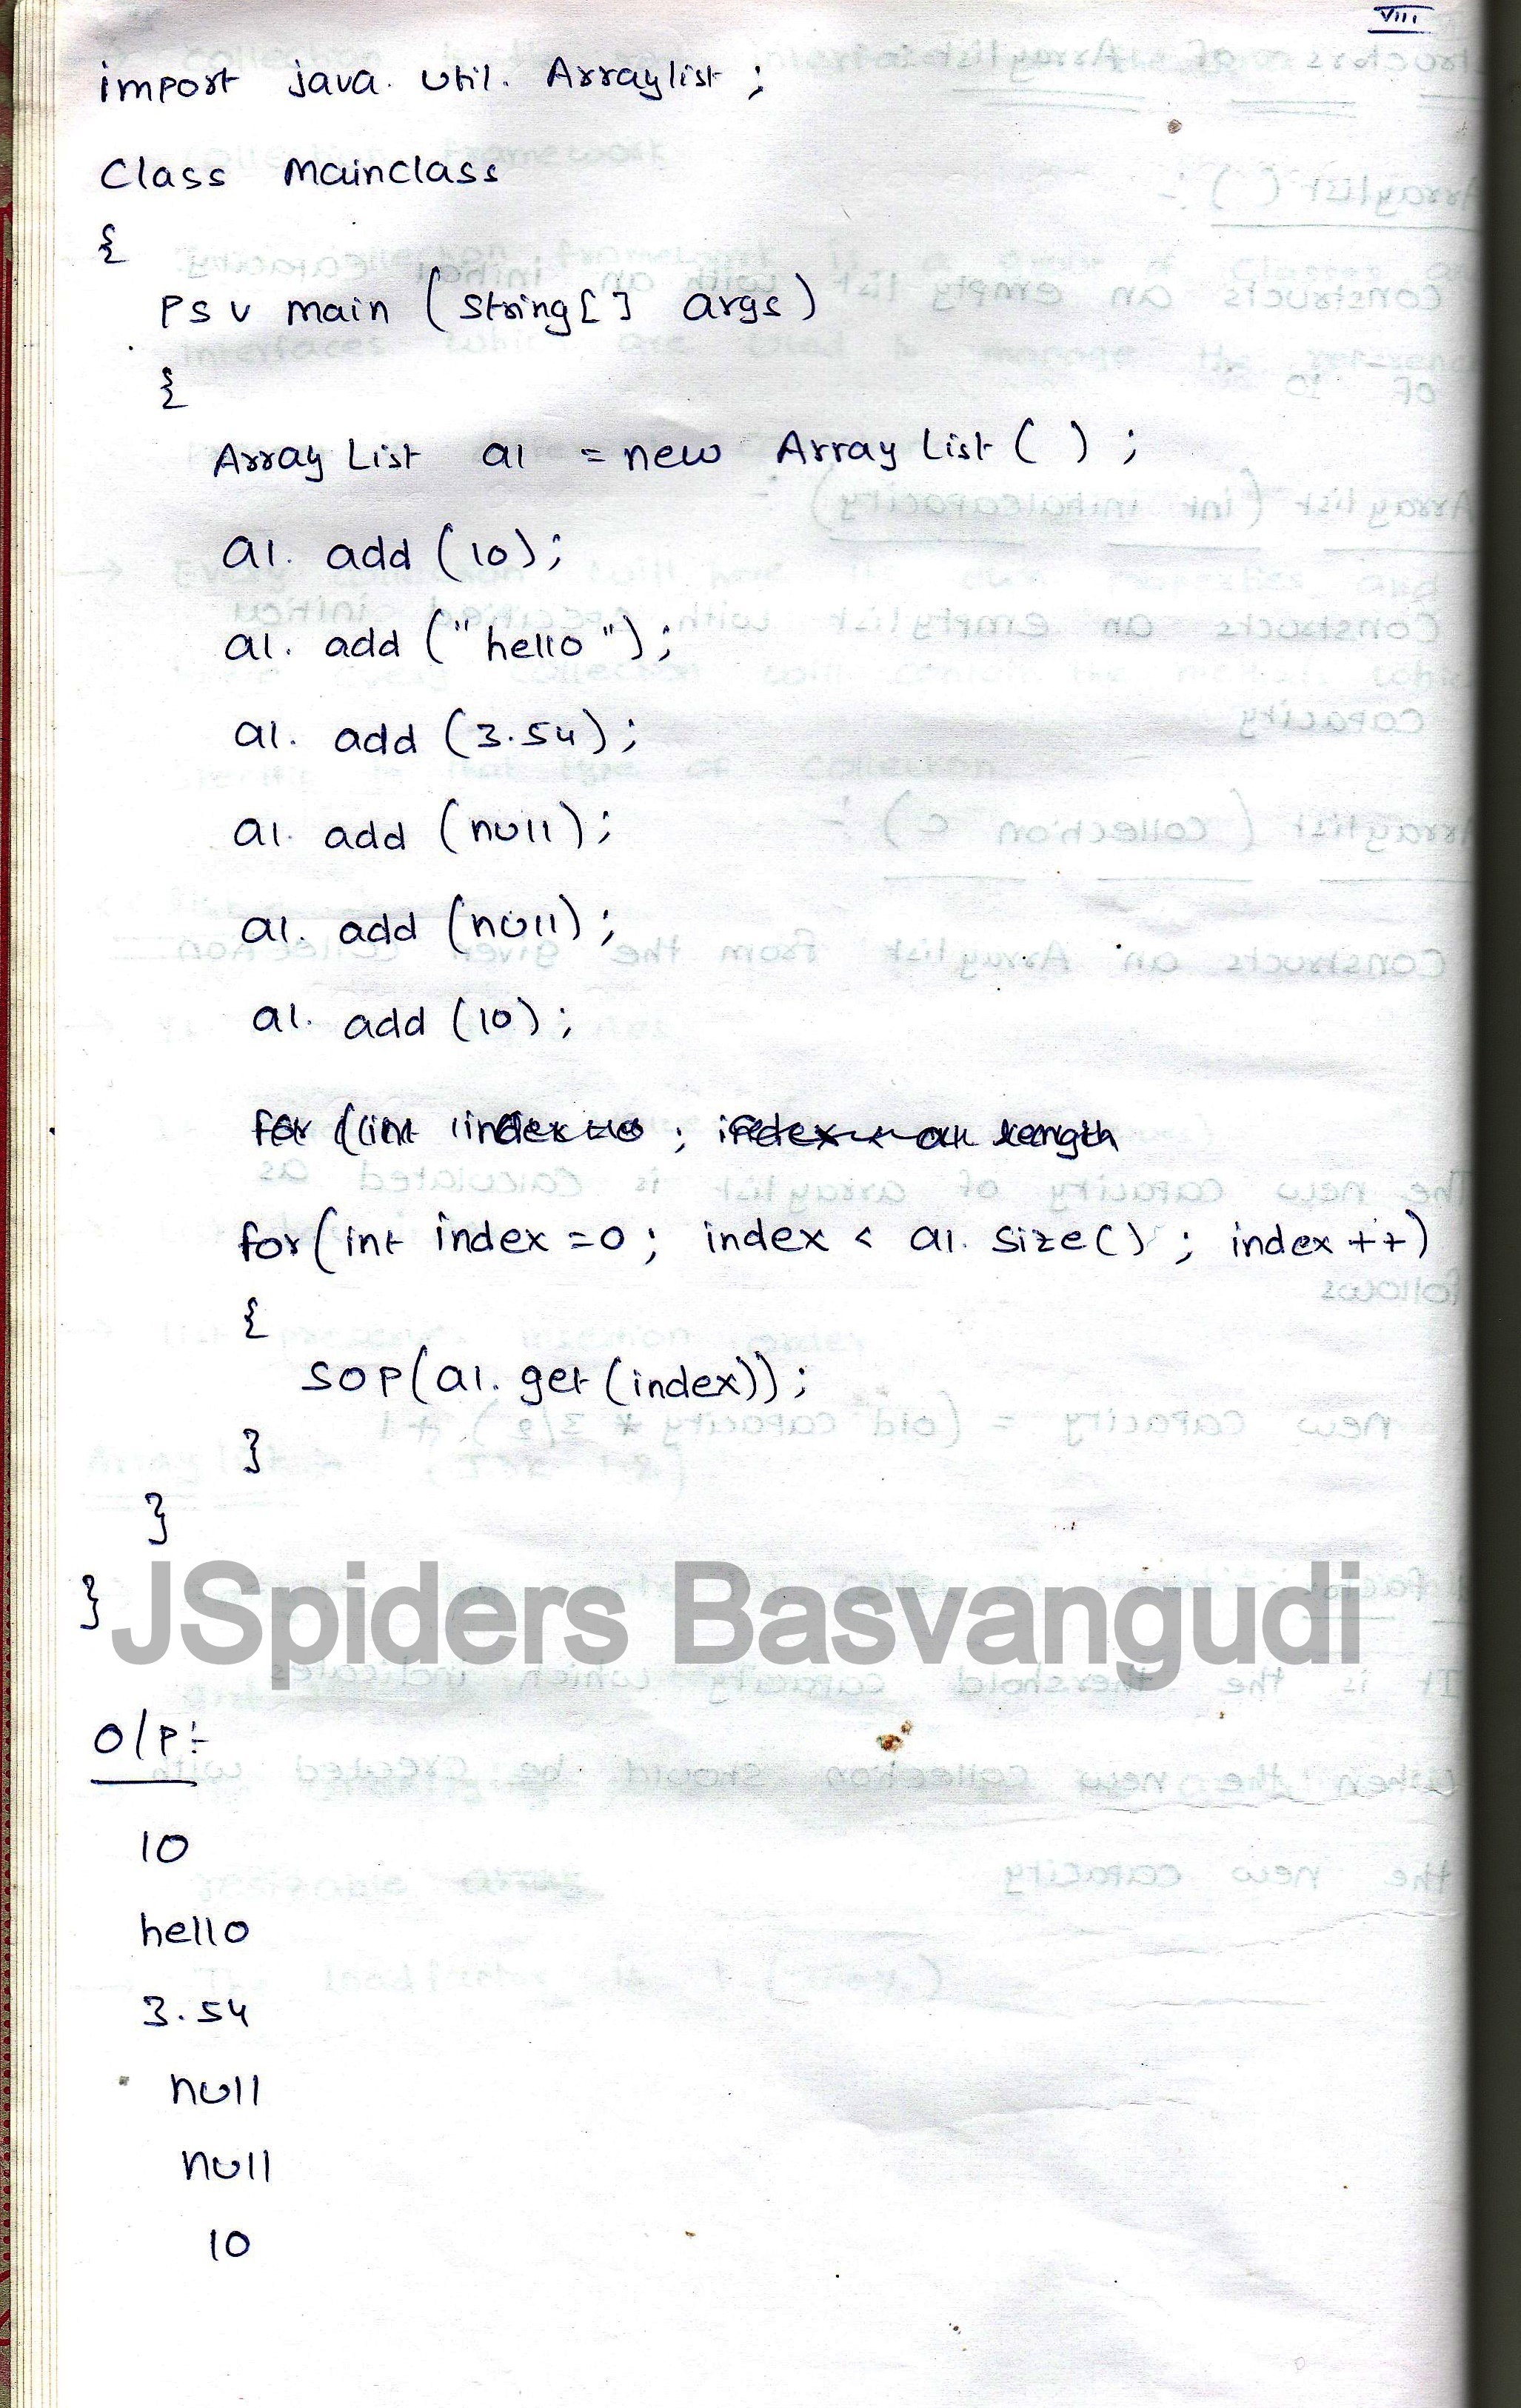 VIII
import java. util. Arraylist ;
Class Mainclass
{
PSV main (String[] args)
{
Array List al = new Array List ( ) ;
al. add (10);
al. add ("hello");
al. add (3.54);
al. add (null);
al. add (null);
al. add (10);
for (int index = 0 ; index < al. length
for(int index =0; index < al. size() ; index ++)
{
SOP(al. get (index));
}
}
}
JSpiders Basvangudi
O/P:-
10
hello
3.54
null
null
10